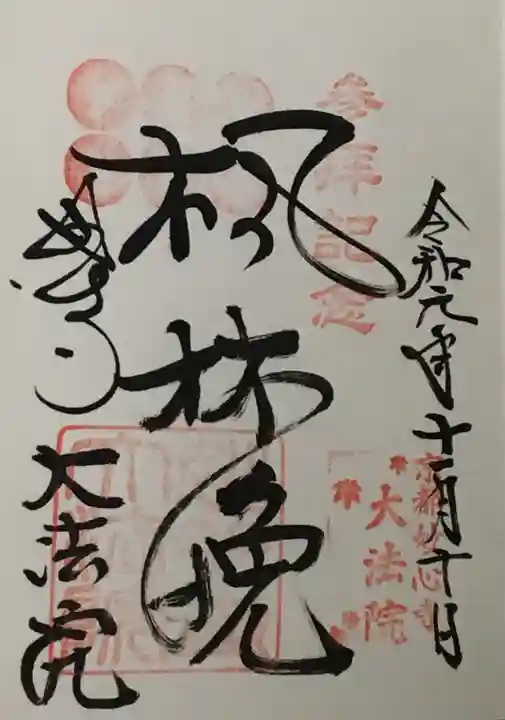 参拝記念
令和元年十一月十日
京都妙心寺
大法院
楓林晩
大法院